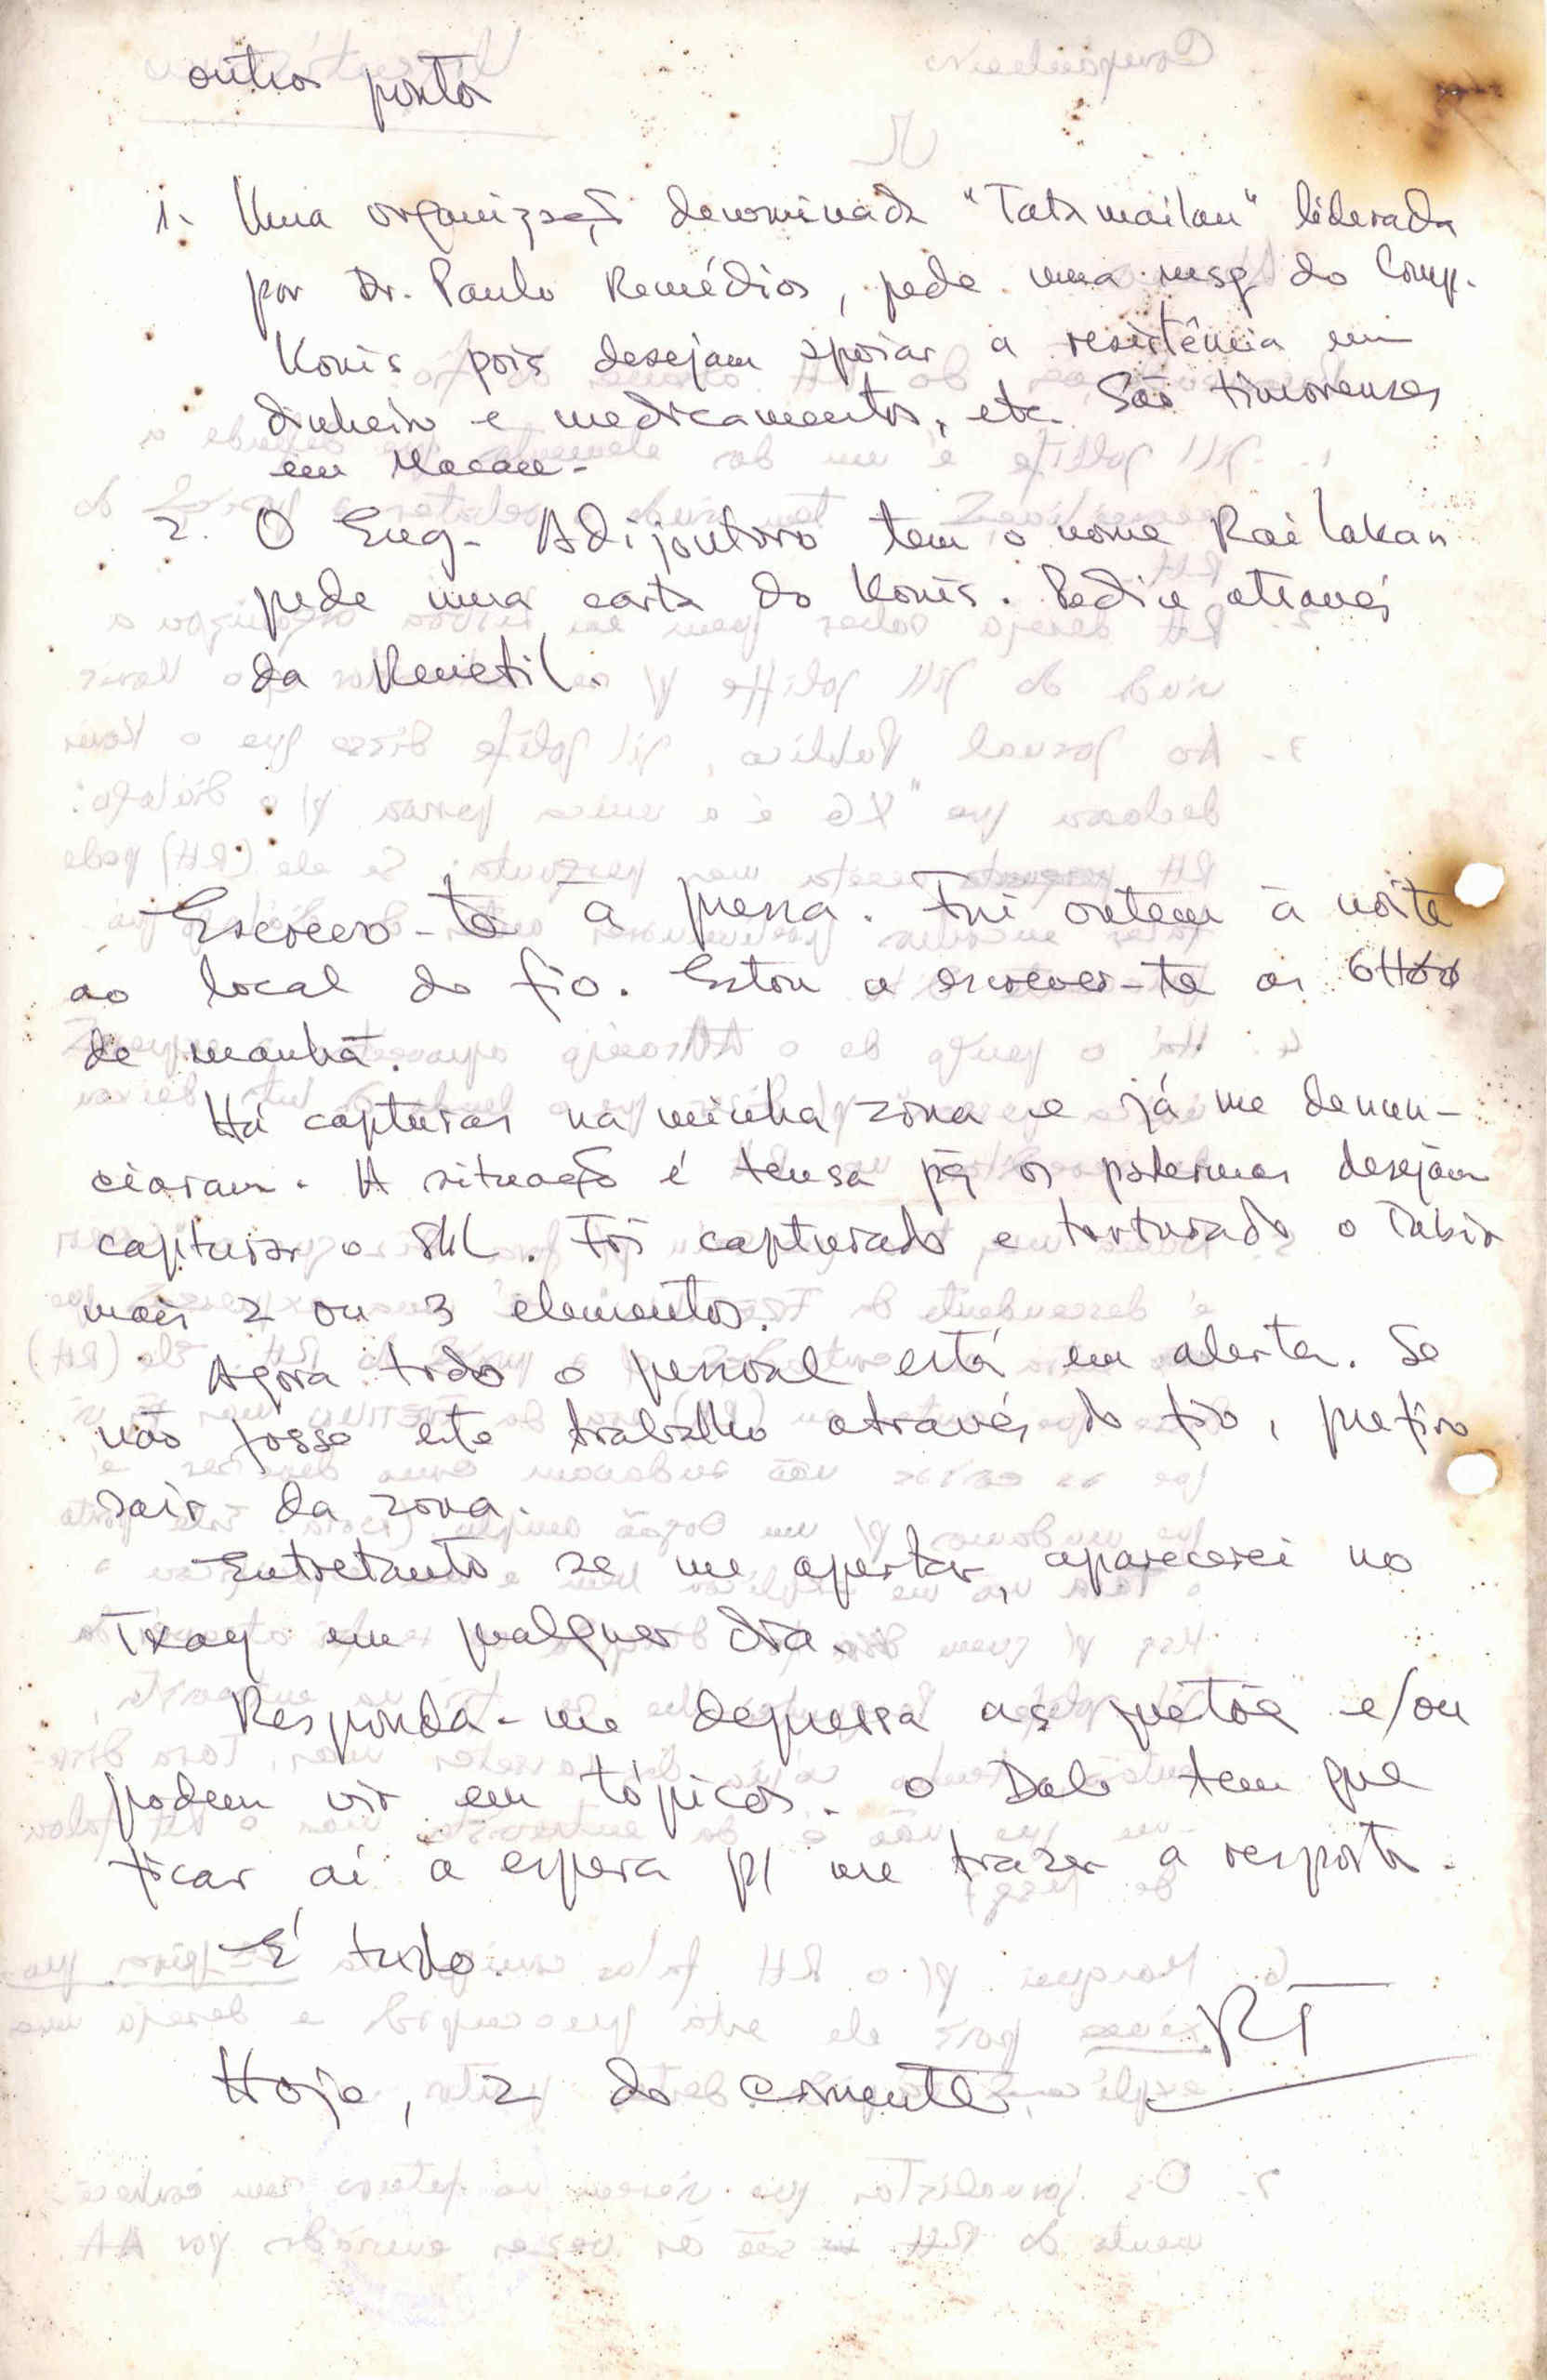 outros pontos
1. Uma organização denominada "Tatamailau" liderada
por Dr. Paulo Remédios, pede uma msg do Comp.
Konis pois desejam apoiar a resistência em
dinheiro e medicamentos, etc. São timorenses
em Macau.
2. O Eng. Adijontoro tem o nome Rai lakan
pede uma carta do Konis. Pediu através
da Renetil.
Escrevo-te à pressa. Fui ontem à noite
ao local do fio. Estou a escrever-te às 6H00
de manhã.
Há capturas na minha zona e já me denun-
ciaram. A situação é tensa pq os desejam
capturar o SKL. Foi capturado e torturado o
mais 2 ou 3 elementos.
Agora todo o pessoal está em alerta. Se
não fosse este trabalho através do fio, prefiro
sair da zona.
Entretanto se me apertar, aparecerei no
em qualquer dia.
Responda-me depressa as e/ou
podem vir em tópicos. O tem que
ficar aí a espera p/ me trazer a resposta.
É tudo.
RT
Hoje, 2 do corrente